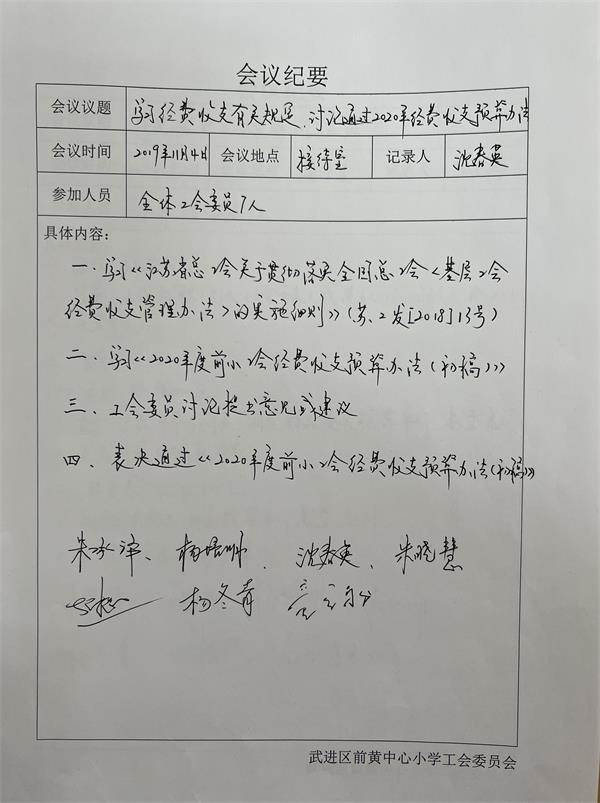 会议纪要
会议议题 学习经费收支有关规定、讨论通过2020年经费收支预算办法
会议时间 2019年11月4日 会议地点 接待室 记录人 沈春英
参加人员 全体工会委员7人
具体内容：
一、学习《江苏省总工会关于贯彻落实全国总工会<基层工会
经费收支管理办法>的实施细则》（苏工发[2018]13号）
二、学习《2020年度前小工会经费收支预算办法（初稿）》
三、工会委员讨论提出意见或建议
四、表决通过《2020年度前小工会经费收支预算办法（初稿）》
沈春英、朱晓慧
杨冬青
武进区前黄中心小学工会委员会